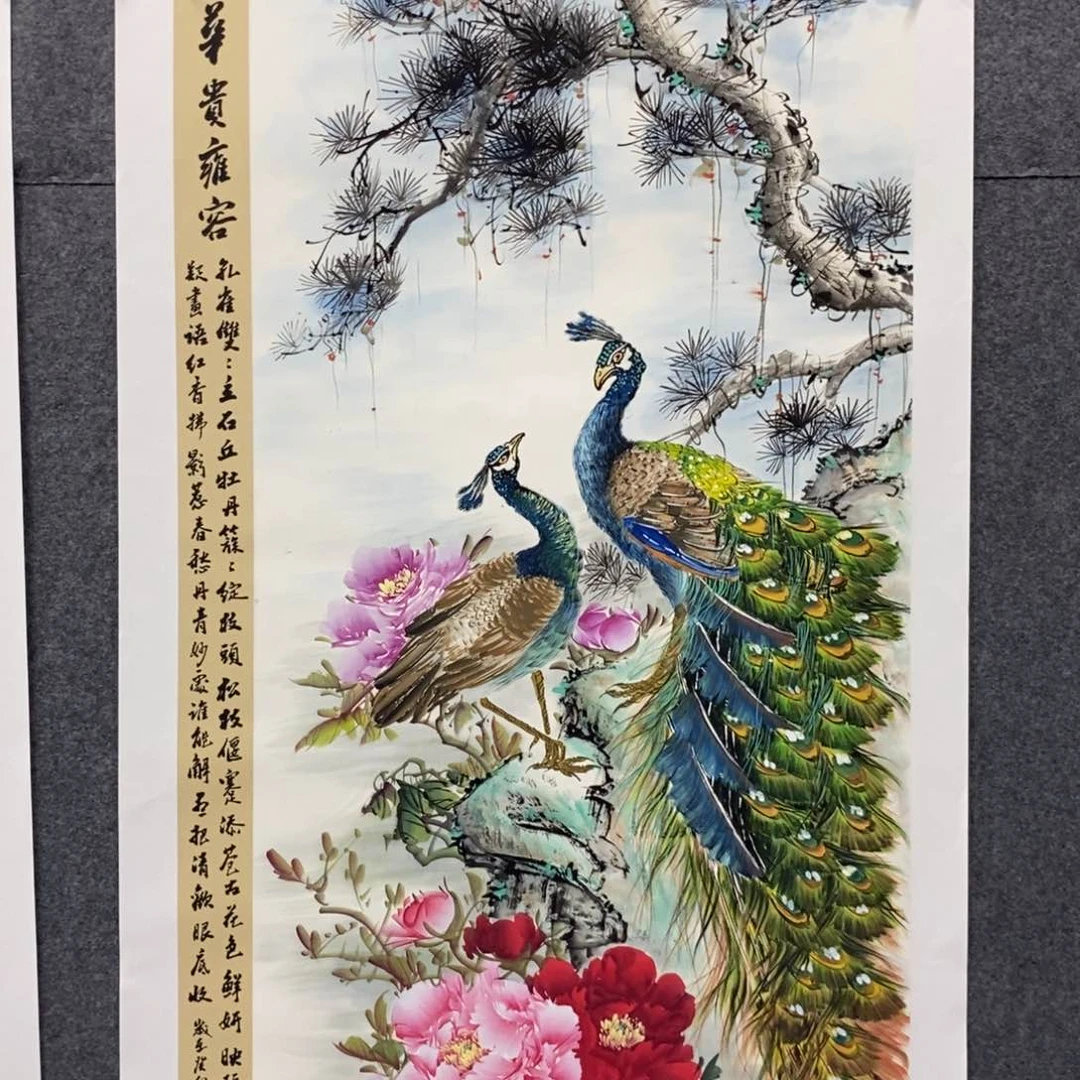 華貴雍容
孔雀雙〻立石丘牡丹簇〻綻枝頭松枝偃蹇添蒼古花色鮮妍映
疑畫語紅香拂影惹春愁丹青妙處誰能解
清歡眼底收